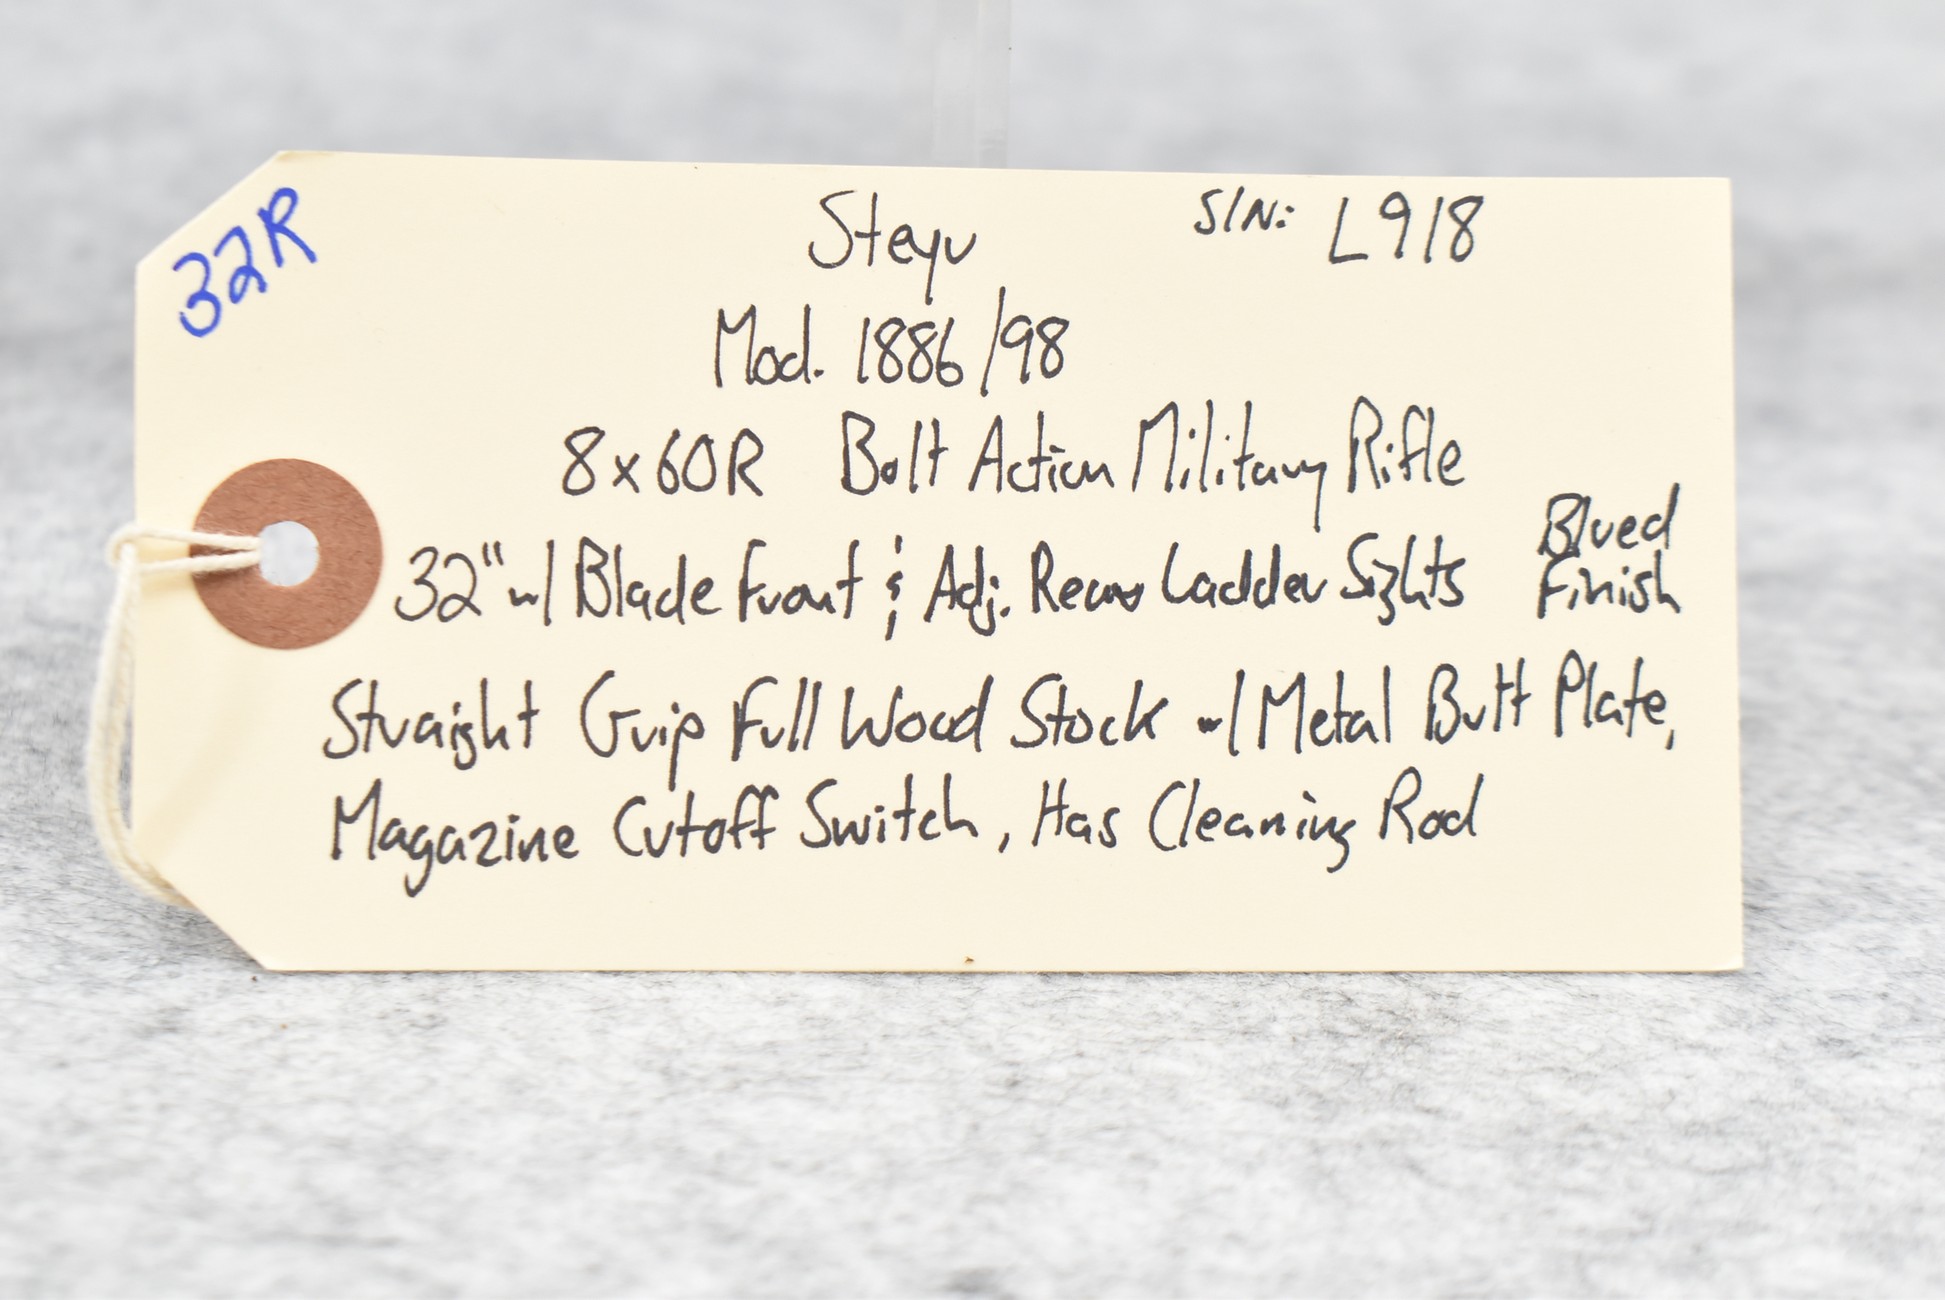 32R
Steyr S/N: L918
Mod. 1886/98
8x60R Bolt Action Military Rifle
32" w/ Blade Front & Adj. Rear Ladder Sights Blued Finish
Straight Grip Full Wood Stock w/ Metal Butt Plate,
Magazine Cutoff Switch, Has Cleaning Rod